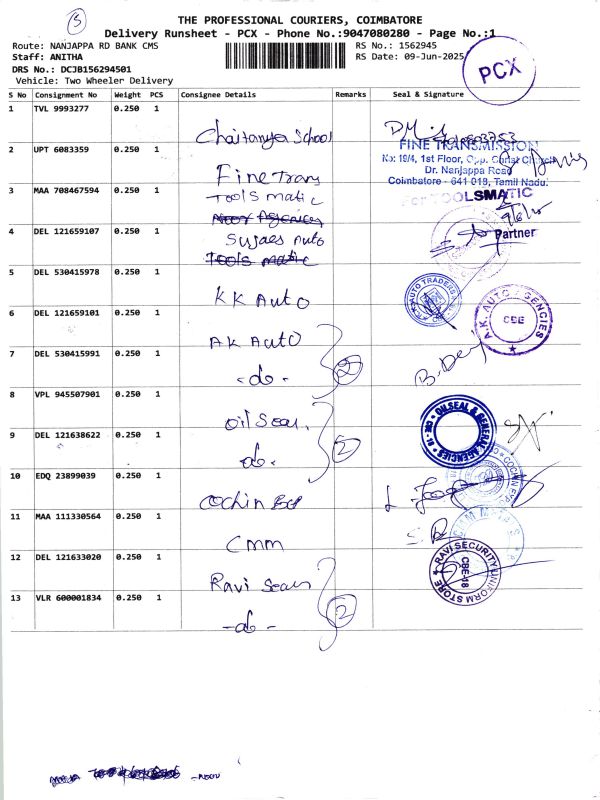 THE PROFESSIONAL COURIERS, COIMBATORE
Delivery Runsheet - PCX - Phone No.:9047080280 - Page No.:1
Route: NANJAPPA RD BANK CMS
RS No.: 1562945
Staff: ANITHA
RS Date: 09-Jun-2025
DRS No.: DCJB156294501
Vehicle: Two Wheeler Delivery
PCX
S No Consignment No Weight PCS Consignee Details Remarks Seal & Signature
1 TVL 9993277 0.250 1
Chaitanya School
2 UPT 6083359 0.250 1
Fine Trans
FINE TRANSMISSION
No: 19/4, 1st Floor, Opp. Christ Church
Dr. Nanjappa Road
Coimbatore - 641 018, Tamil Nadu.
3 MAA 708467594 0.250 1
Tools matic
For TOOLSMATIC
9/6/25
Partner
4 DEL 121659107 0.250 1
Sujaes Auto
Tools matic
5 DEL 530415978 0.250 1
KK Auto
AUTO TRADERS
6 DEL 121659101 0.250 1
AK Auto
A.K. AUTO AGENCIES
CBE
7 DEL 530415991 0.250 1
-do-
2
B. Devi
8 VPL 945507901 0.250 1
oil Seal
OILSEAL & GENERAL AGENCIES CBE-18
9 DEL 121638622 0.250 1
-do-
2
10 EDQ 23899039 0.250 1
Cochin Exp
COCHIN EXP
11 MAA 111330564 0.250 1
CMM
12 DEL 121633020 0.250 1
Ravi Seau
RAVI SECURITY UNIFORM STORE
CBE-18
13 VLR 600001834 0.250 1
-do-
2